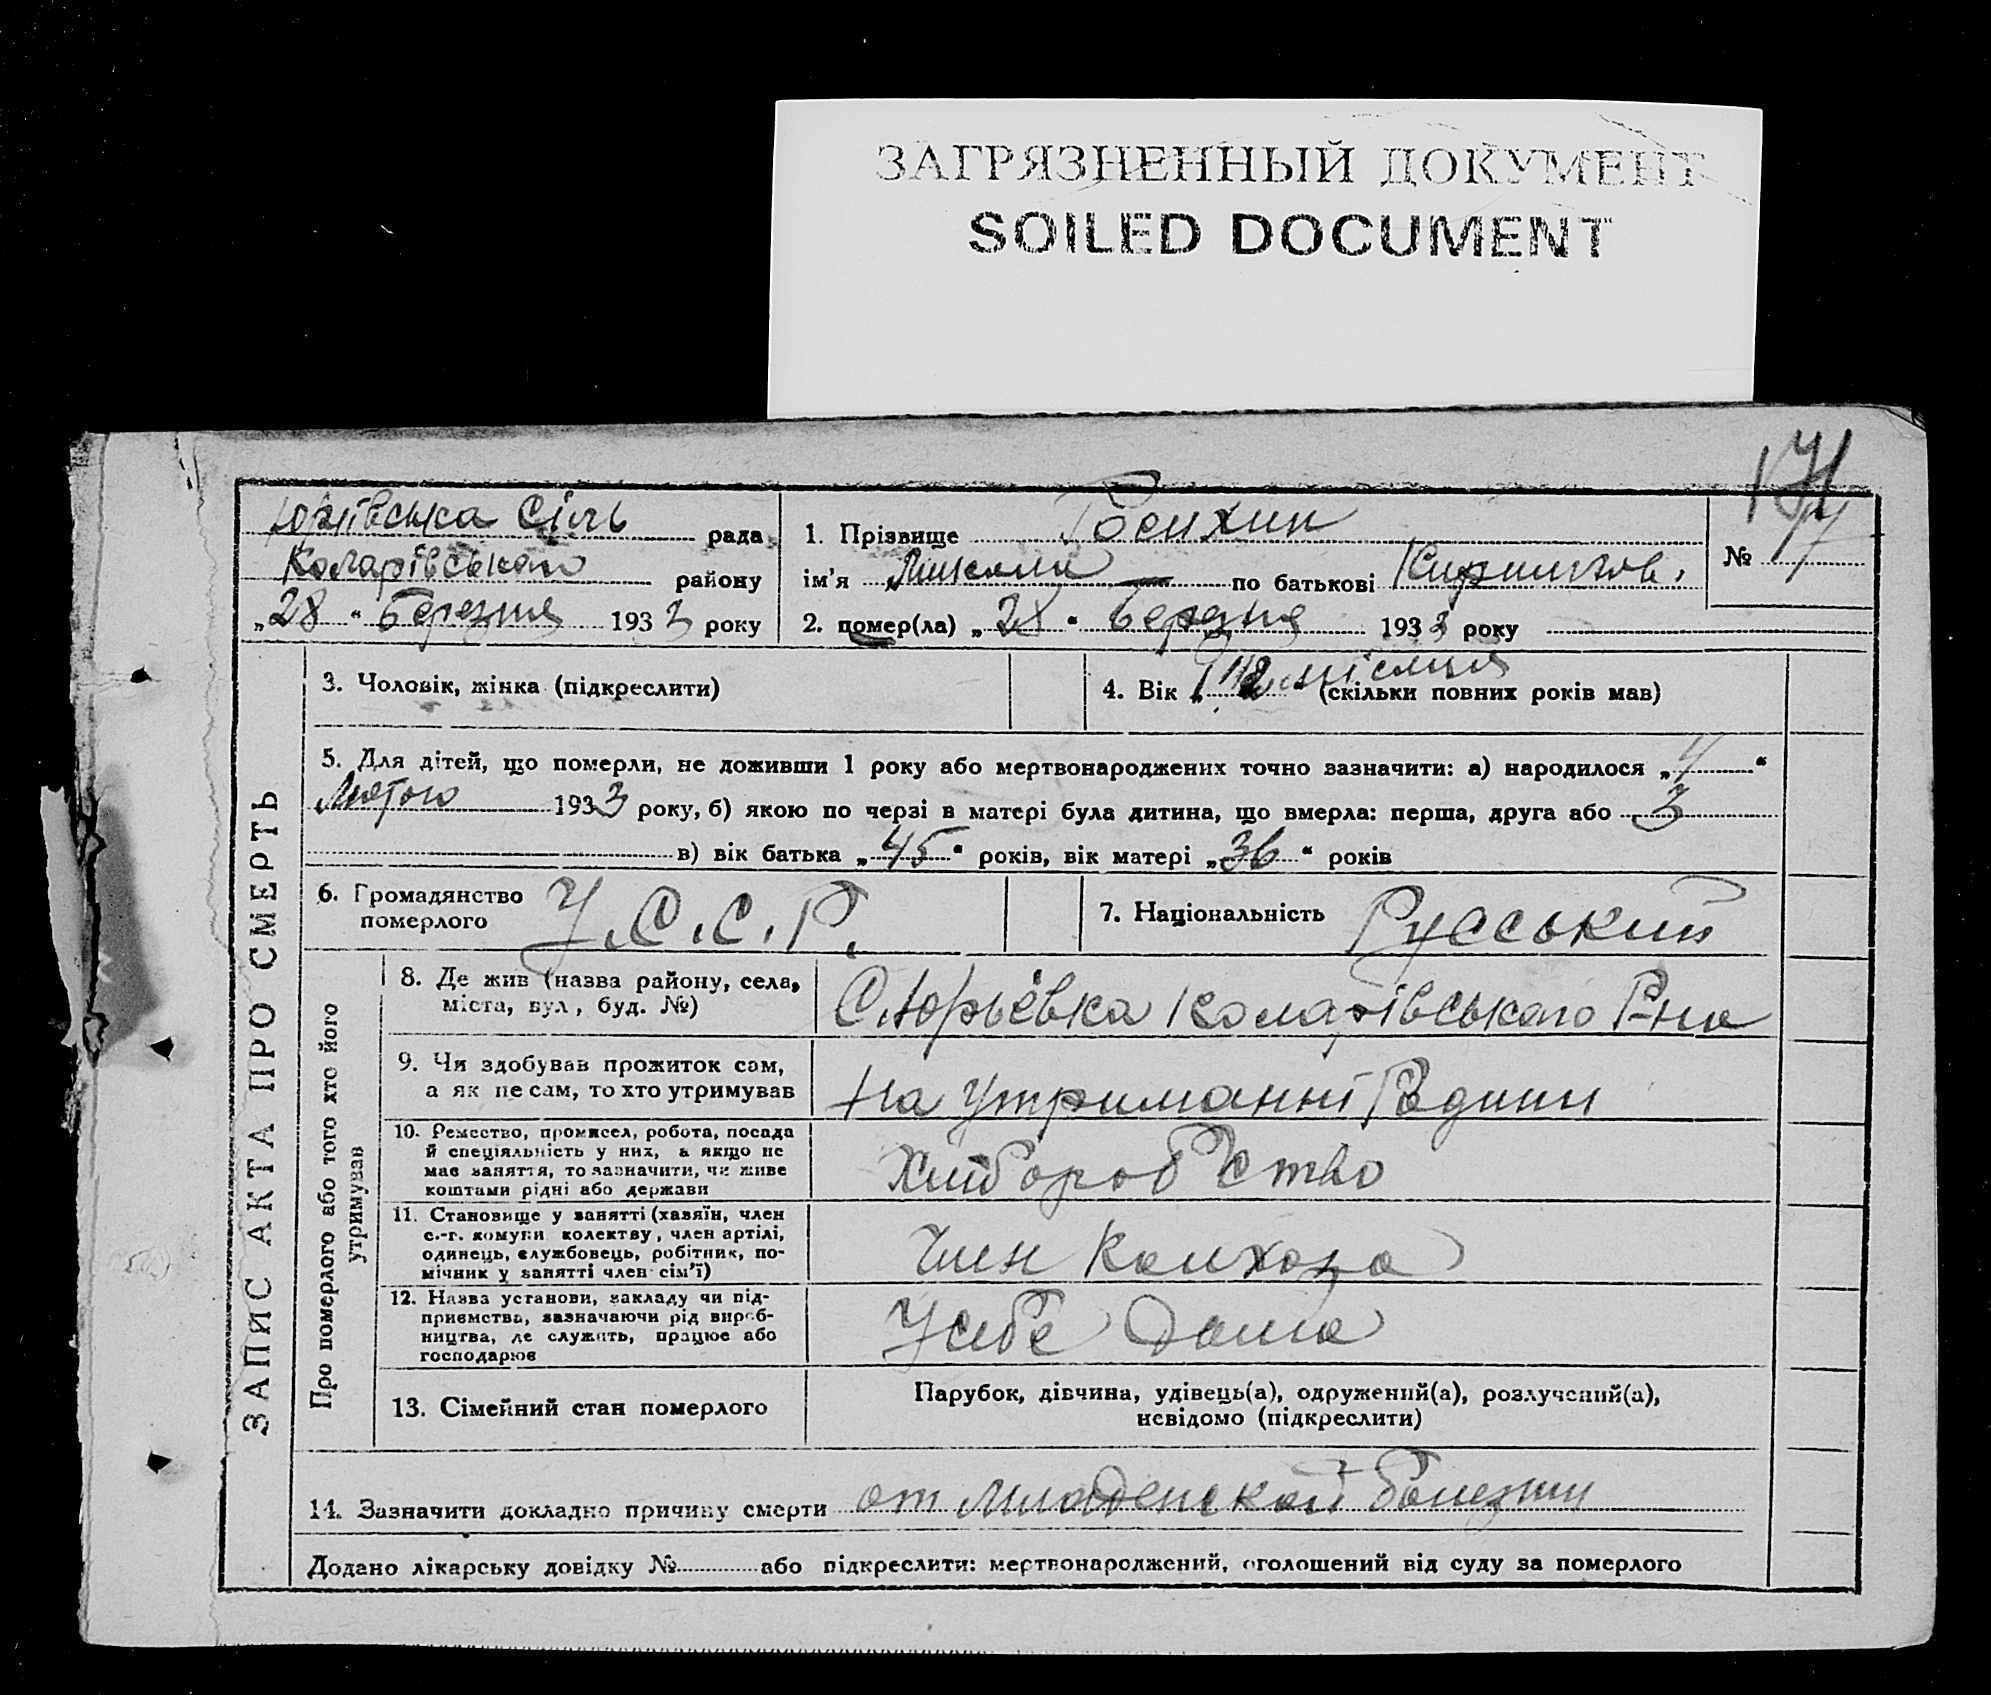 ЗАГРЯЗНЕННЫЙ ДОКУМЕНТ
SOILED DOCUMENT
171
Юріївська Сіль рада
Коларівського району
„28“ Березня 1933 року
1. Прізвище
ім’я по батькові
2. помер(ла) „28“ Березня 1933 року
№ 7
ЗАПИС АКТА ПРО СМЕРТЬ
3. Чоловік, жінка (підкреслити)
4. Вік місяця (скільки повних років мав)
5. Для дітей, що померли, не доживши 1 року або мертвонароджених точно зазначити: а) народилося „4“
Лютого 1933 року, б) якою по черзі в матері була дитина, що вмерла: перша, друга або 3
в) вік батька „45“ років, вік матері „36“ років
6. Громадянство
померлого
У.С.С.Р.
7. Національність Русський
Про померлого або того хто його
утримував
8. Де жив (назва району, села,
міста, вул., буд. №)
С. Юрьевка Коларівського Р-на
9. Чи здобував прожиток сам,
а як не сам, то хто утримував
На утриманні Родини
10. Ремество, промисел, робота, посада
й спеціяльність у них, а якщо не
має заняття, то зазначити, чи живе
коштами рідні або держави
Хліборобство
11. Становище у занятті (хазяїн, член
с.-г. комуни колектву, член артілі,
одинець, службовець, робітник, по-
мічник у занятті член сім’ї)
Член Колхоза
12. Назва установи, закладу чи під-
приємства, зазначаючи рід вироб-
ництва, де служить, працює або
господарює
У себе Дома
13. Сімейний стан померлого
Парубок, дівчина, удівець(а), одружений(а), розлучений(а),
невідомо (підкреслити)
14. Зазначити докладно причину смерти от Младенской болезни
Додано лікарську довідку № або підкреслити: мертвонароджений, оголошений від суду за померлого